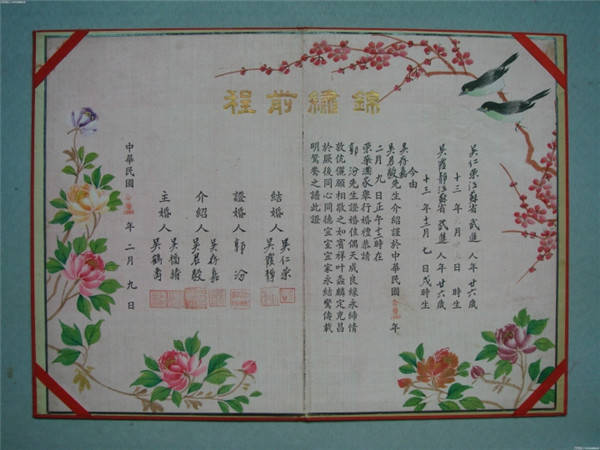 錦繡前程
吳仁榮江蘇省武進人年廿六歲
十三年 月 日 時生
吳霞靜江蘇省武進人年廿六歲
十三年十二月七日戌時生
今由
吳存嘉
吳君毅先生介紹證於中華民國 年
二月九日正午十二時在
榮華酒家舉行婚禮恭請
郭汾先生證婚佳偶天成良緣永締情
敦伉儷願相敬之如賓祥叶螽麟定克昌
於厥後同心同德宜室宜家永結鸞儔載
明鴛 之譜此證
結婚人
吳仁榮
吳霞靜
證婚人
郭汾
介紹人
吳存嘉
吳君毅
主婚人
吳 緒
吳鶴壽
中華民國 年二月九日